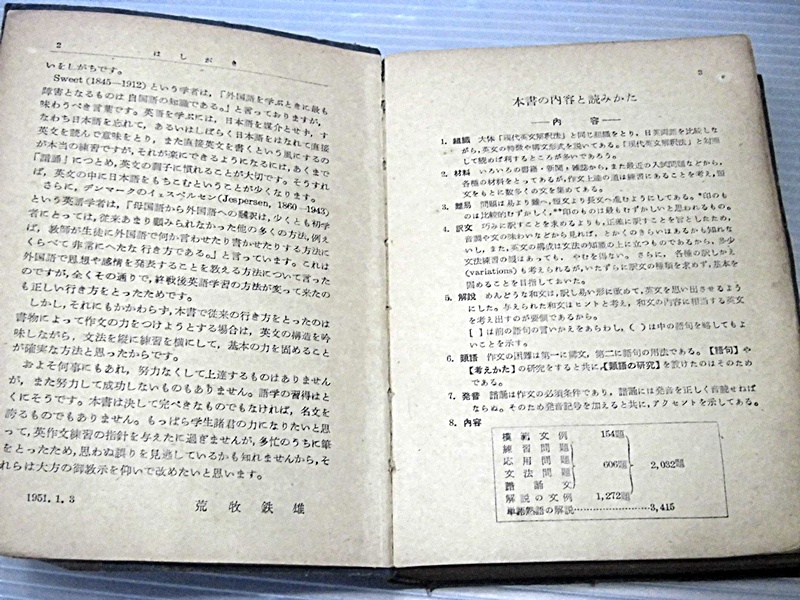 2
はしがき
いをしがちです。
Sweet (1845—1912) という学者は，「外国語を学ぶときに最も
障害となるものは自国語の知識である。」と言っておりますが，
味わうべき言葉です。英語を学ぶには，日本語を媒介とせず，す
なわち日本語を忘れて，あるいはしばらく日本語をはなれて直接
英文を読んで意味をとり，また直接英文を書くという風にするの
が本当の練習ですが，それが楽にできるようになるには，あくまで
「諳誦」につとめ，英文の調子に慣れることが大切です。そうすれ
ば，英文の中に日本語をもちこむということが少くなります。
さらに，デンマークのイェスペルセン (Jespersen, 1860—1943)
という英語学者は，「母国語から外国語への飜訳は，少くとも初学
者にとっては，従来あまり顧みられなかった他の多くの方法，例え
ば，教師が生徒に外国語で何か言わせたり書かせたりする方法に
くらべて非常にへたな行き方である。」と言っています。これは
外国語で思想や感情を発表することを教える方法について言った
のですが，全くその通りで，終戦後英語学習の方法が変って来たの
も正しい行き方をとったためです。
しかし，それにもかかわらず，本書で従来の行き方をとったのは
書物によって作文の力をつけようとする場合は，英文の構造を吟
味しながら，文法を縦に練習を横にして，基本の力を固めること
が確実な方法と思ったからです。
およそ何事にもあれ，努力なくして上達するものはありません
が，また努力して成功しないものもありません。語学の習得はと
くにそうです。本書は決して完ぺきなものでもなければ，名文を
誇るものでもありません。もっぱら学生諸君の力になりたいと思
って，英作文練習の指針を与えたに過ぎませんが，多忙のうちに筆
をとったため，思わぬ誤りを見逃しているかも知れませんから，そ
れらは大方の御教示を仰いで改めたいと思います。
1951. 1. 3
荒牧鉄雄
3
本書の内容と読みかた
——内容——
1. 組織 大体「現代英文解釈法」と同じ組織をとり，日英両語を比較しな
がら，英文の特徴や構文形式を説いてある。「現代英文解釈法」と対照
して読めば利するところが多いであろう。
2. 材料 いろいろの書籍・新聞・雑誌から，また最近の入試問題などから，
各種の材料をとってあるが，作文上達の道は練習にあることを考え，短
文をもとに数多くの文を集めてある。
3. 難易 問題は易より難へ，短文より長文へ進むようにしてある。*印のも
のは比較的むずかしく，**印のものは最もむずかしいと思われるもの。
4. 訳文 巧みに訳すことを求めるよりも，正確に訳すことを旨としたため，
音調や文の味わいなどから見れば，とかくのきらいはあるかも知れな
いし，また，英文の構成は文法の知識の上に立つものであるから，多少
文法練習の観はあっても，やむを得ない。さらに，各種の訳しかえ
(variations) も考えられるが，いたずらに訳文の種類を求めず，基本を
固めることを目指しておいた。
5. 解説 めんどうな和文は，訳し易い形に改めて，英文を思い出させるよう
にした。与えられた和文はヒントと考え，和文の内容に相当する英文
を考え出すのが要領であるから。
［ ］は前の語句の言いかえをあらわし，（ ）は中の語句を略してもよ
いことを示す。
6. 類語 作文の困難は第一に構文，第二に語句の用法である。【語句】や
【考えかた】の研究をすると共に，【類語の研究】を設けたのはそのため
である。
7. 発音 諳誦は作文の必須条件であり，諳誦には発音を正しく音読せねば
ならぬ。そのため発音記号を加えると共に，アクセントを示してある。
8. 内容
模範文例 154題
練習問題
応用問題
文法問題 606題 2,032題
諳誦文
解説の文例 1,272題
単語熟語の解説……………………3,415